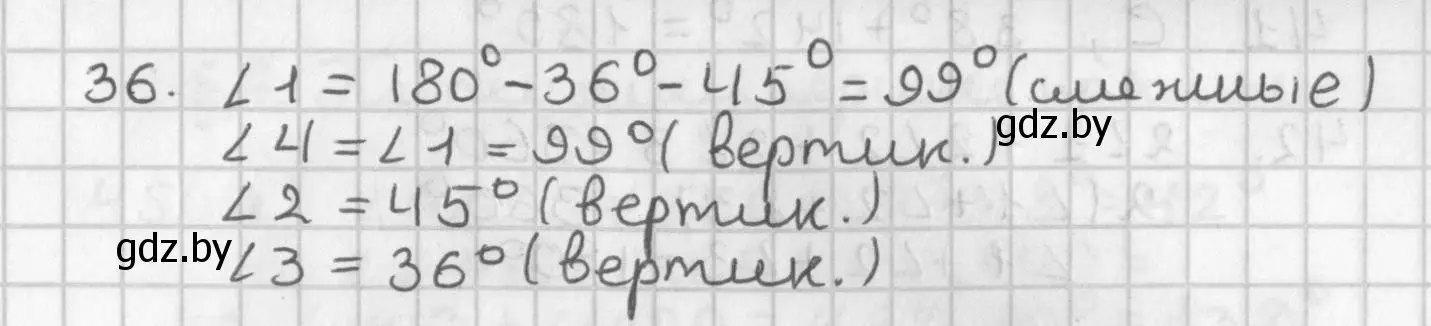 36. ∠1 = 180° - 36° - 45° = 99° (смежные)
gdz.by
∠4 = ∠1 = 99° (вертик.)
∠2 = 45° (вертик.)
gdz.by
∠3 = 36° (вертик.)